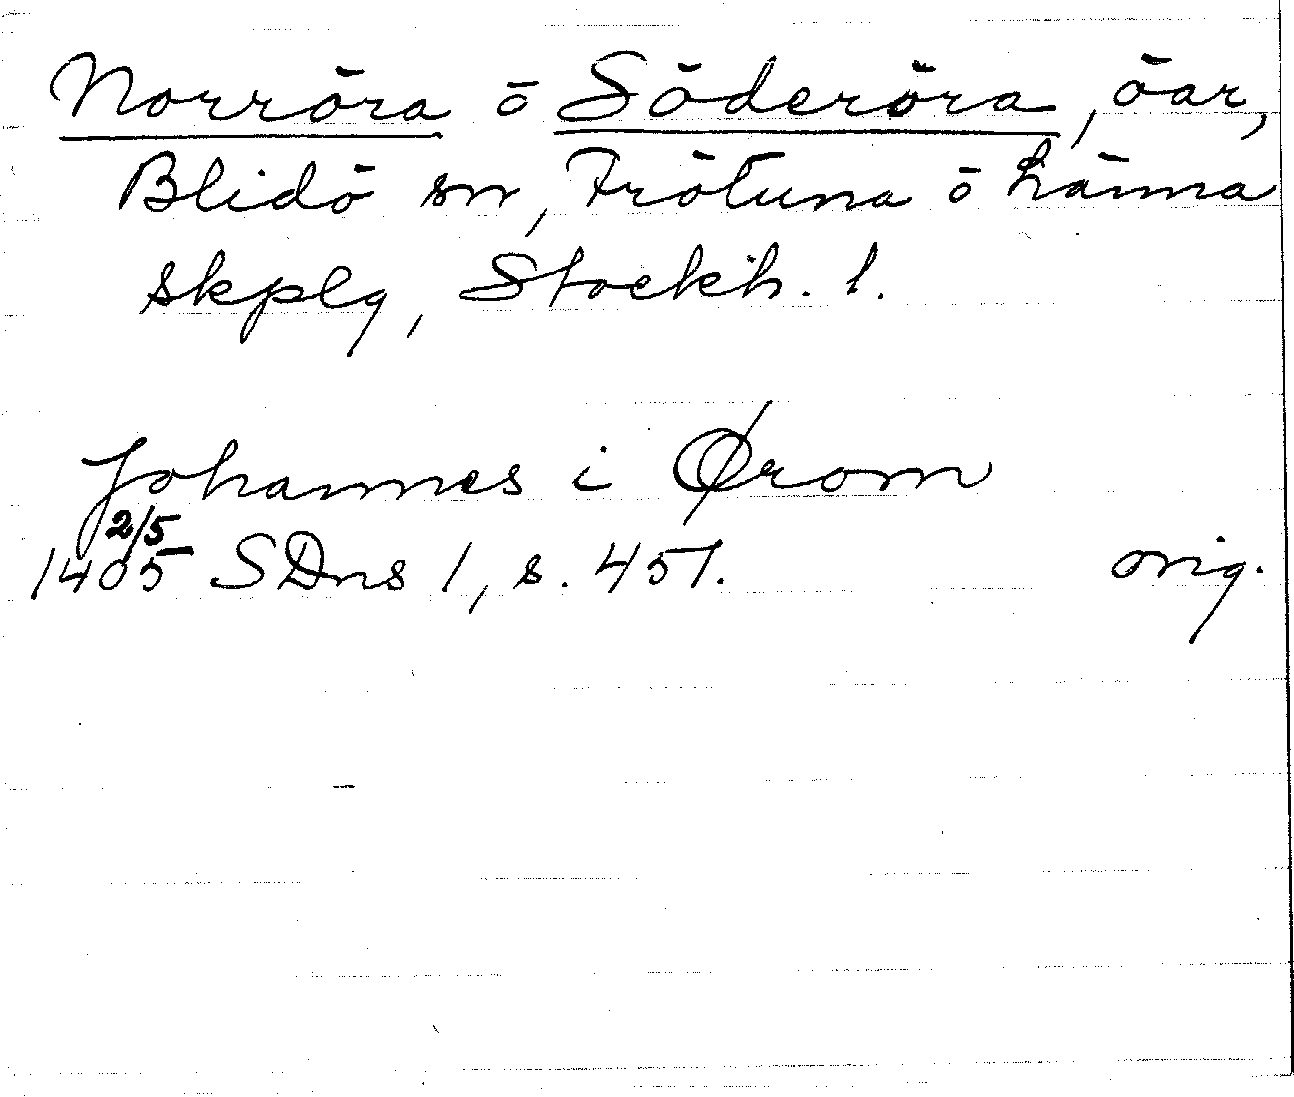 Norröra o Söderöra, öar,
Blidö sn, Frötuna o Länna
skplg, Stockh. l.
Johannes i Ørom
2/5
1405 SDns 1, s. 451. orig.